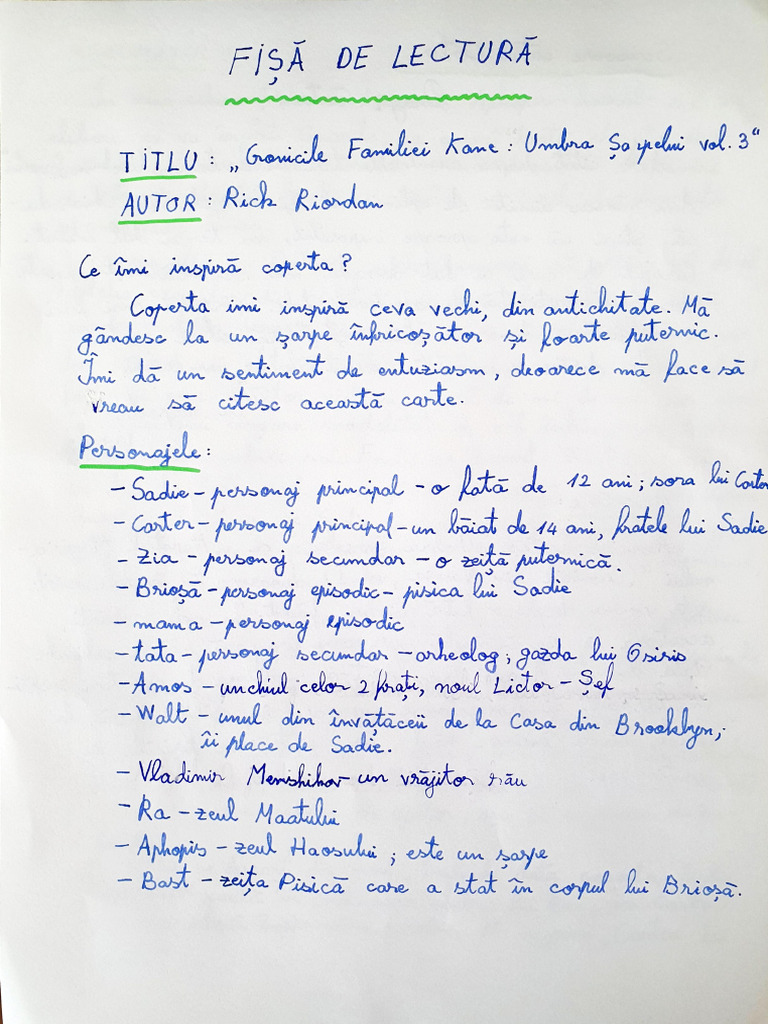 FIȘĂ DE LECTURĂ
TITLU : „Cronicile Familiei Kane : Umbra Șarpelui vol. 3"
AUTOR : Rick Riordan
Ce îmi inspiră coperta ?
Coperta imi inspiră ceva vechi, din antichitate. Mă
gândesc la un șarpe înfricoșător și foarte puternic.
Îmi dă un sentiment de entuziasm, deoarece mă face să
vreau să citesc această carte.
Personajele :
- Sadie - personaj principal - o fată de 12 ani ; sora lui Carter
- Carter - personaj principal - un băiat de 14 ani, fratele lui Sadie
- Zia - personaj secundar - o zeiță puternică.
- Brioșă - personaj episodic - pisica lui Sadie
- mama - personaj episodic
- tata - personaj secundar - arheolog ; gazda lui Osiris
- Amos - unchiul celor 2 frați, noul Lictor - Șef
- Walt - unul din învățăceii de la Casa din Brooklyn ;
îi place de Sadie.
- Vladimir Menshikov - un vrăjitor rău
- Ra - zeul Maatului
- Aphopis - zeul Haosului ; este un șarpe
- Bast - zeița Pisică care a stat în corpul lui Brioșă.